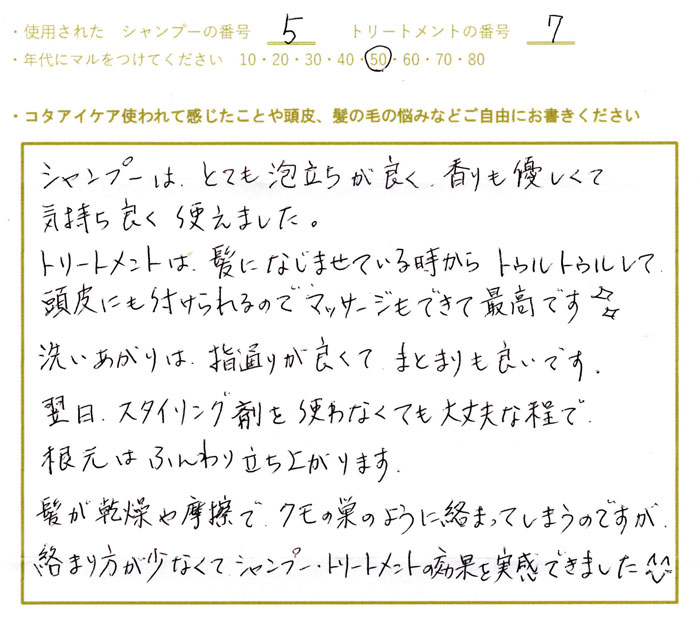 ・使用された　シャンプーの番号　5　　トリートメントの番号　7
・年代にマルをつけてください　10・20・30・40・50・60・70・80
・コタアイケア使われて感じたことや頭皮、髪の毛の悩みなどご自由にお書きください
シャンプーは、とても泡立ちが良く、香りも優しくて
気持ち良く使えました。
トリートメントは、髪になじませている時からトゥルトゥルして、
頭皮にも付けられるのでマッサージもできて最高です☆☆
洗いあがりは、指通りが良くて、まとまりも良いです。
翌日、スタイリング剤を使わなくても大丈夫な程で、
根元はふんわり立ち上がります。
髪が乾燥や摩擦で、クモの巣のように絡まってしまうのですが、
絡まり方が少なくて、シャンプー・トリートメントの効果を実感できました^^